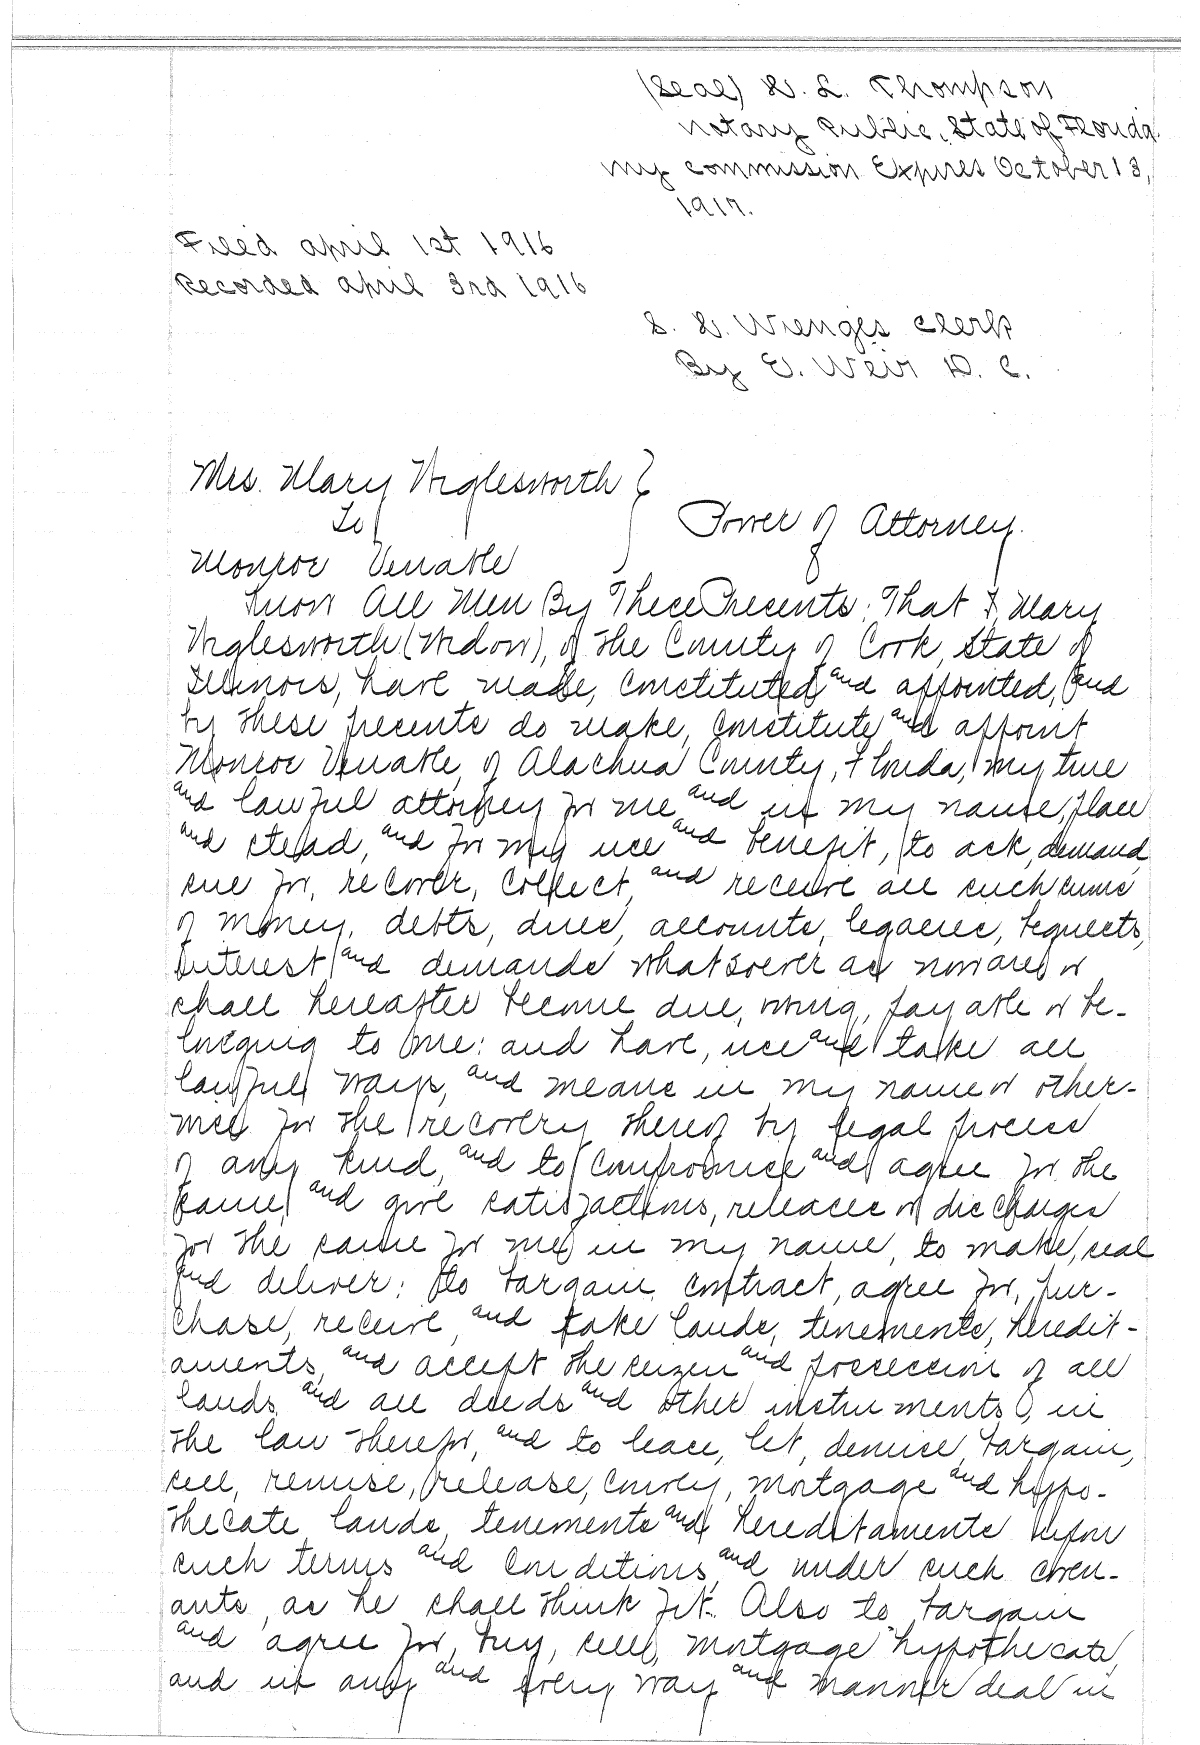 (Seal) W. L. Thompson
Notary Public, State of Florida
My commission Expires October 13,
1917.
Filed April 1st 1916
Recorded April 3rd 1916
S. H. Wienges Clerk
By E. Weir D. C.
Mrs. Mary Wiglesworth }
To } Power of Attorney.
Monroe Venable
Know All Men By These Presents: That I, Mary
Wiglesworth (Widow), of the County of Cook, State of
Illinois, have made, constituted and appointed, and
by these presents do make, constitute and appoint
Monroe Venable, of Alachua County, Florida, my true
and lawful attorney for me and in my name, place
and stead, and for my use and benefit, to ask, demand,
sue for, recover, collect, and receive all such sums
of money, debts, dues, accounts, legacies, bequests,
interest and demands whatsoever as now are or
shall hereafter become due, owing, payable or be-
longing to me: and have, use and take all
lawful ways, and means in my name or other-
wise for the recovery thereof by legal process
of any kind, and to compromise and agree for the
same, and give satisfactions, releases or discharges
for the same for me, in my name, to make, seal
and deliver: to bargain, contract, agree for, pur-
chase, receive, and take lands, tenements, heredit-
aments, and accept the seizen and possession of all
lands, and all deeds and other instruments, in
the law therefor, and to lease, let, demise, bargain,
sell, remise, release, convey, mortgage and hypo-
thecate lands, tenements and hereditaments upon
such terms and conditions, and under such coven-
ants, as he shall think fit. Also to bargain
and agree for, buy, sell, mortgage hypothecate,
and in any and every way and manner deal in